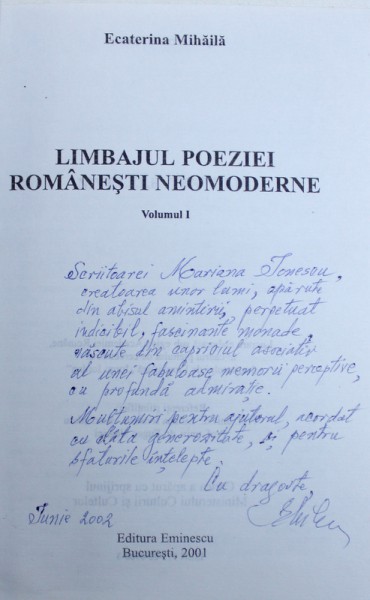 Ecaterina Mihăilă
LIMBAJUL POEZIEI
ROMÂNEŞTI NEOMODERNE
Volumul I
Scriitoarei Mariana Ionescu,
creatoarea unor lumi, apărute
din abisul amintirii, perpetuat
indicibil, fascinante monade,
născute din capriciul asociativ
al unei fabuloase memorii perceptive,
cu profundă admiraţie.
Mulţumiri pentru ajutorul, acordat
cu atâta generozitate, şi pentru
sfaturile înţelepte.
Cu dragoste,
Iunie 2002
Editura Eminescu
Bucureşti, 2001